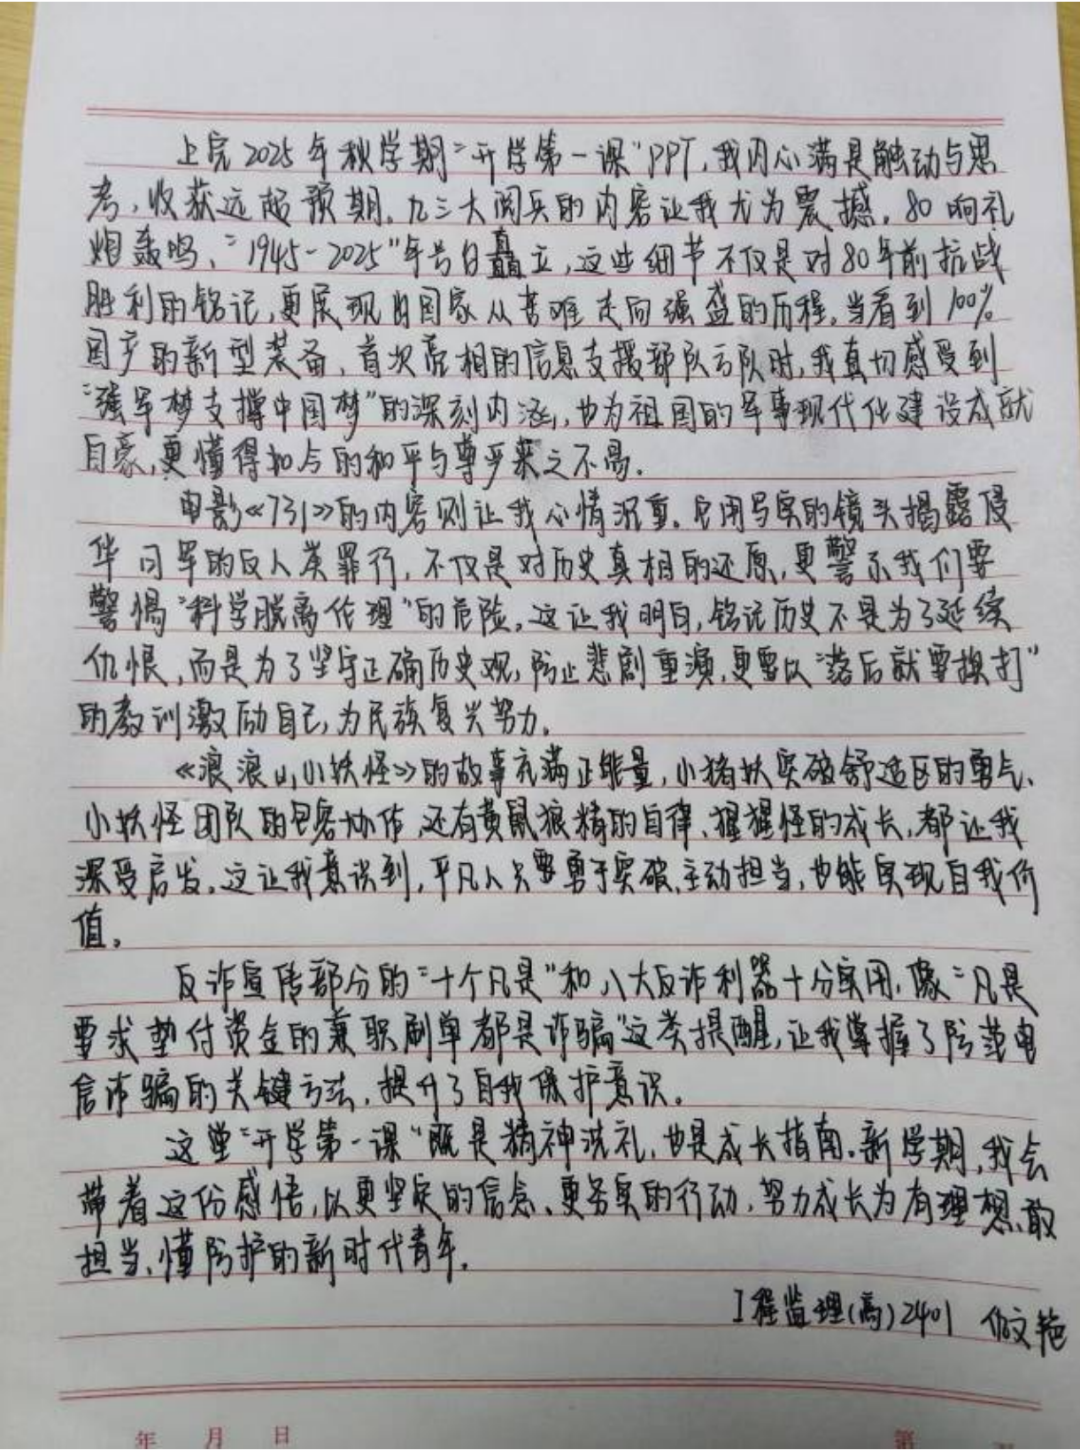 上完2025年秋学期“开学第一课”PPT，我内心满是触动与思
考，收获远超预期。九三大阅兵的内容让我尤为震撼。80响礼
炮轰鸣、“1945-2025”年号矗立，这些细节不仅是对80年前抗战
胜利的铭记，更展现国家从苦难走向强盛的历程。当看到100%
国产的新型装备、首次亮相的信息支援部队方队时，我真切感受到
“强军梦支撑中国梦”的深刻内涵，也为祖国的军事现代化建设成就
自豪，更懂得如今的和平与尊严来之不易。
电影《731》的内容则让我心情沉重。它用写实的镜头揭露侵
华日军的反人类罪行，不仅是对历史真相的还原，更警示我们要
警惕“科学脱离伦理”的危险。这让我明白，铭记历史不是为了延续
仇恨，而是为了坚守正确历史观，防止悲剧重演，更要以“落后就要挨打”
的教训激励自己，为民族复兴努力。
《浪浪山小妖怪》的故事充满正能量，小猪妖突破舒适区的勇气、
小妖怪团队的包容协作，还有黄鼠狼精的自律、猩猩怪的成长，都让我
深受启发。这让我意识到，平凡人只要勇于突破、主动担当，也能实现自我价
值。
反诈宣传部分的“十个凡是”和八大反诈利器十分实用，像“凡是
要求垫付资金的兼职刷单都是诈骗”这类提醒，让我掌握了防范电
信诈骗的关键方法，提升了自我保护意识。
这堂“开学第一课”既是精神洗礼，也是成长指南。新学期，我会
带着这份感悟，以更坚定的信念、更务实的行动，努力成长为有理想、敢
担当、懂防护的新时代青年。
工程监理(高)2401 文艳
年 月 日
第